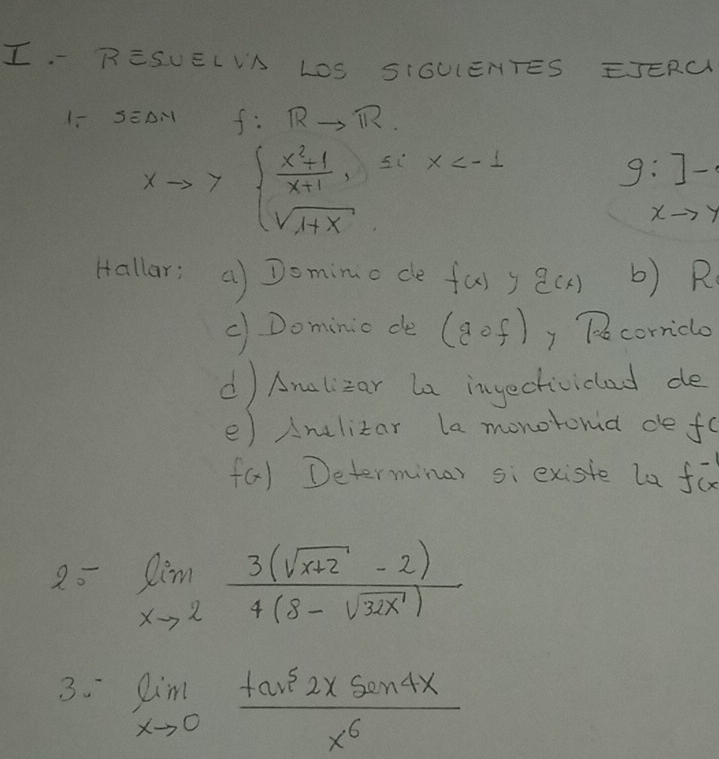 I.- RESUELVA LOS SIGUIENTES EJERCI
1.- SEAN f: ℝ → ℝ.
x → y { (x²+1)/(x+1), si x < -1
√(1+x).
g: ]-
x → y
Hallar: a) Dominio de f(x) y g(x) b) R
c) Dominio de (g∘f) y Recorrido
d) Analizar la inyectividad de
e) Analizar la monotonia de f(
f(x) Determinar si existe la f⁻¹(x
2.- lim x→2 3(√(x+2) - 2) / 4(8 - √(32x))
3.- lim x→0 tan⁵ 2x sen 4x / x⁶